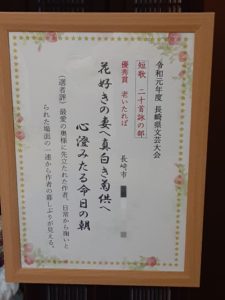 令和元年度 長崎県文芸大会
短歌 二十首詠の部
優秀賞 老いたれば
長崎市
花好きの妻へ真白き菊供へ
心澄みたる今日の朝
(選者評)最愛の奥様に先立たれた作者、日常から掬いと
られた場面の一連から作者の暮しぶりが見える。